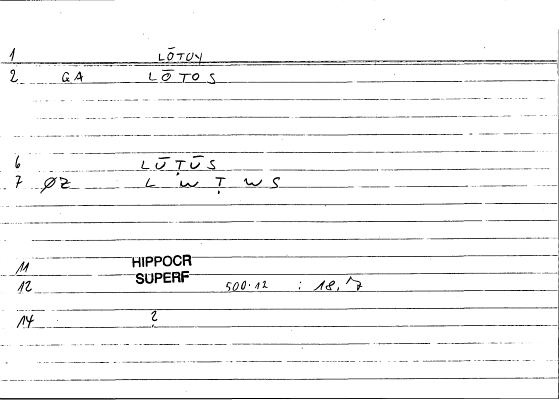 1 LŌTUY
2 GA LŌTOS
6 LŪṬŪS
7 ØZ L W̄ Ṭ W S
11 HIPPOCR
SUPERF
12 500.12 : 18,
14 ?